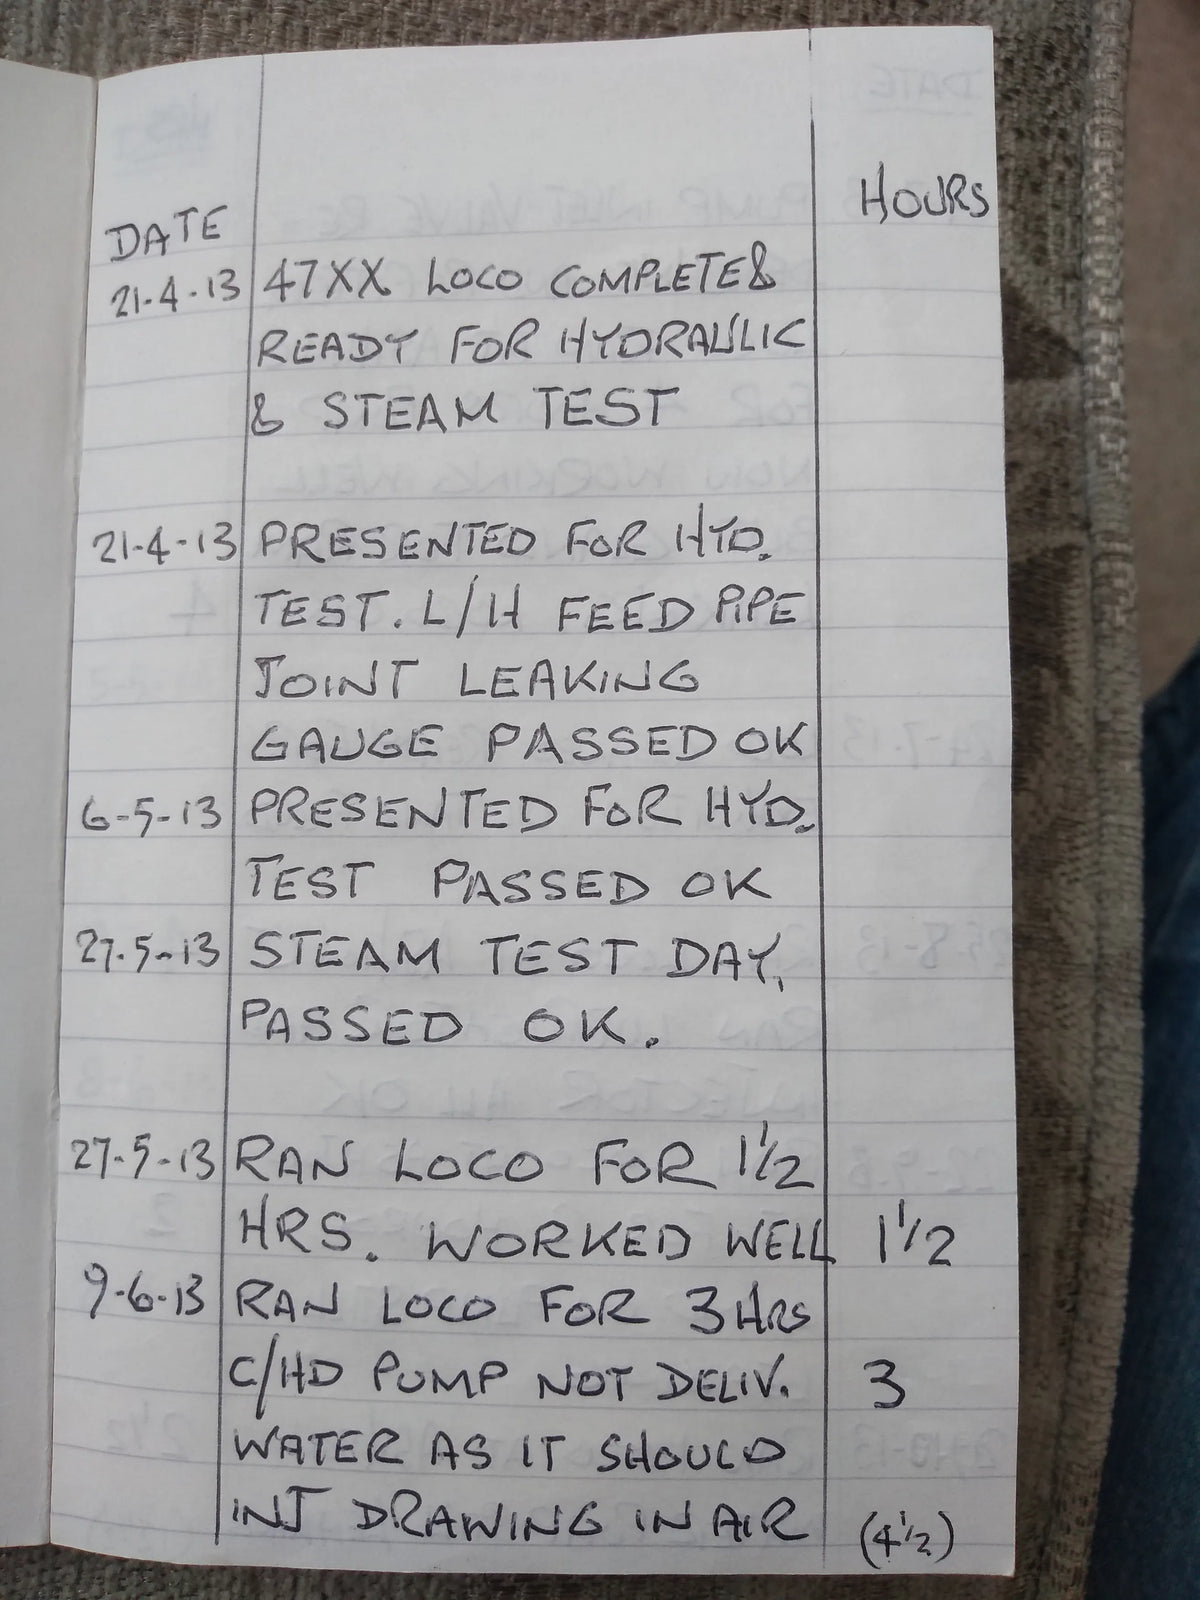 HOURS
DATE
21-4-13 47XX LOCO COMPLETE &
READY FOR HYDRAULIC
& STEAM TEST
21-4-13 PRESENTED FOR HYD.
TEST. L/H FEED PIPE
JOINT LEAKING
GAUGE PASSED OK
6-5-13 PRESENTED FOR HYD.
TEST PASSED OK
27.5-13 STEAM TEST DAY,
PASSED OK.
27-5-13 RAN LOCO FOR 1 1/2
HRS. WORKED WELL 1 1/2
9-6-13 RAN LOCO FOR 3 HRS
C/HD PUMP NOT DELIV. 3
WATER AS IT SHOULD
INJ DRAWING IN AIR (4 1/2)